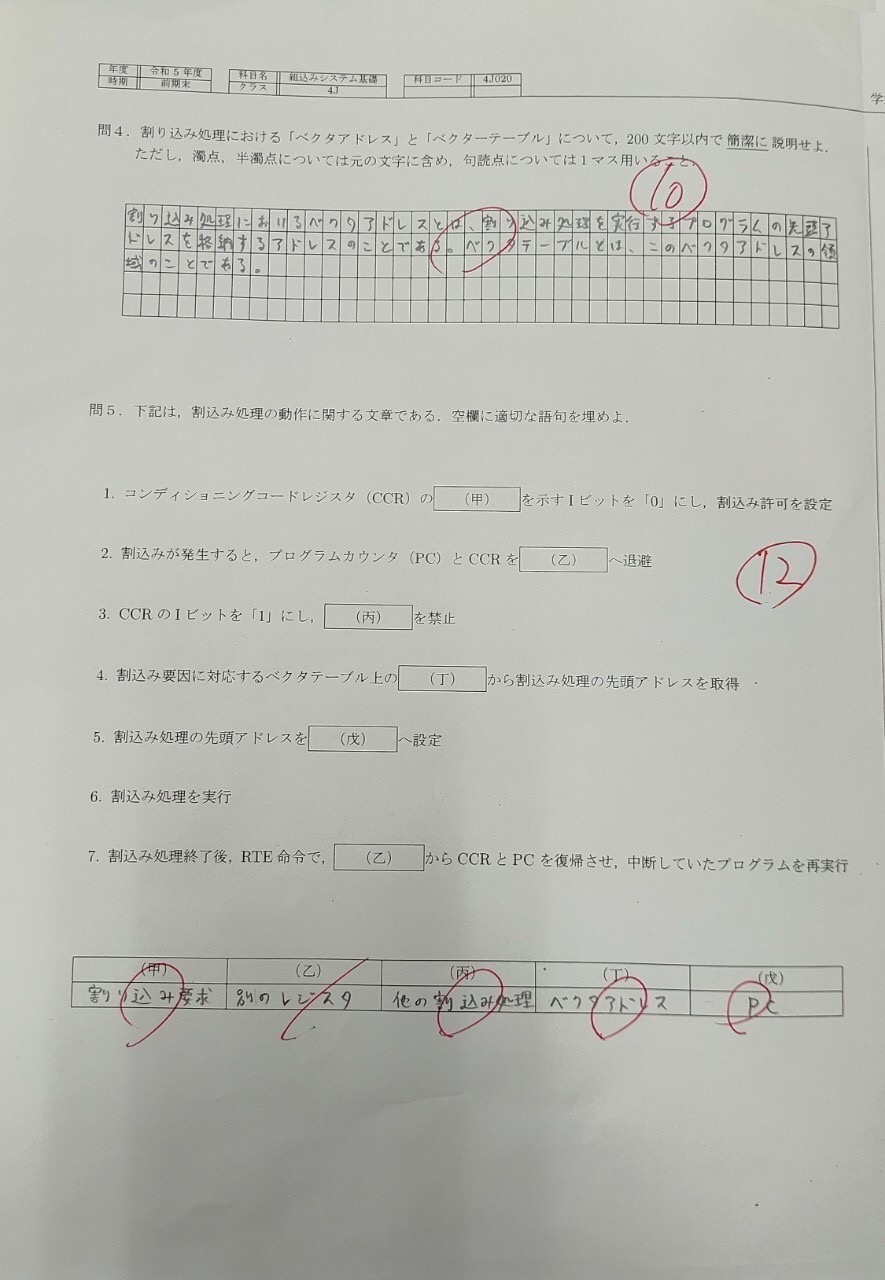 年度 令和5年度 科目名 組込みシステム基礎 科目コード 4J020
時期 前期末 クラス 4J
学
問4. 割り込み処理における「ベクタアドレス」と「ベクターテーブル」について,200文字以内で簡潔に説明せよ.
ただし,濁点,半濁点については元の文字に含め,句読点については1マス用いること.
10
割り込み処理におけるベクタアドレスとは、割り込み処理を実行するプログラムの先頭ア
ドレスを格納するアドレスのことである。ベクタテーブルとは、このベクタアドレスの領
域のことである。
問5. 下記は,割込み処理の動作に関する文章である.空欄に適切な語句を埋めよ.
1. コンディショニングコードレジスタ(CCR)の (甲) を示すIビットを「0」にし,割込み許可を設定
2. 割込みが発生すると,プログラムカウンタ(PC)とCCRを (乙) へ退避
12
3. CCRのIビットを「1」にし, (丙) を禁止
4. 割込み要因に対応するベクタテーブル上の (丁) から割込み処理の先頭アドレスを取得
5. 割込み処理の先頭アドレスを (戊) へ設定
6. 割込み処理を実行
7. 割込み処理終了後,RTE命令で, (乙) からCCRとPCを復帰させ,中断していたプログラムを再実行
(甲) (乙) (丙) (丁) (戊)
割り込み要求 別のレジスタ 他の割り込み処理 ベクタアドレス PC